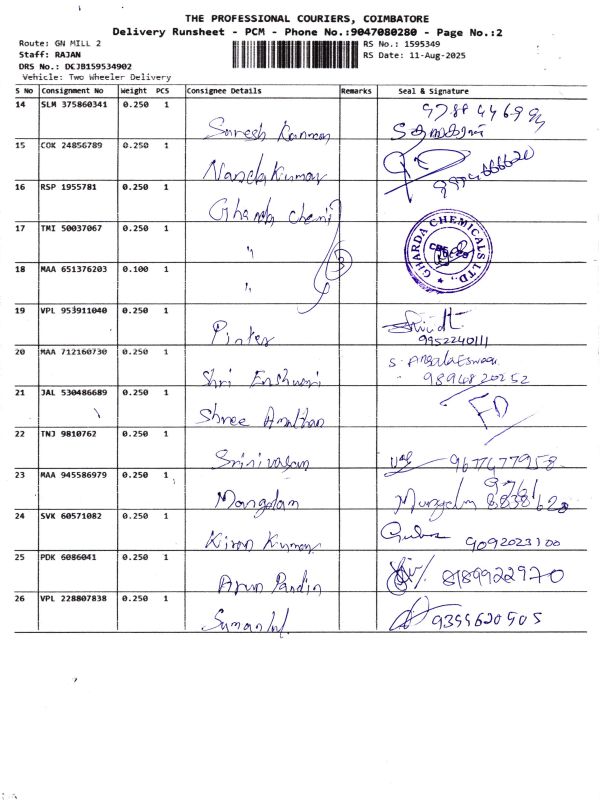 THE PROFESSIONAL COURIERS, COIMBATORE
Delivery Runsheet - PCM - Phone No.:9047080280 - Page No.:2
Route: GN MILL 2
RS No.: 1595349
Staff: RAJAN
RS Date: 11-Aug-2025
DRS No.: DCJB159534902
Vehicle: Two Wheeler Delivery
S No Consignment No Weight PCS Consignee Details Remarks Seal & Signature
14 SLM 375860341 0.250 1 Suresh Kannan
15 COK 24856789 0.250 1 Nandakumar
16 RSP 1955781 0.250 1 Gharda Chemi
17 TMI 50037067 0.250 1 "
GHARDA CHEMICALS LTD.,
18 MAA 651376203 0.100 1 " 3
19 VPL 953911040 0.250 1 Pintex 9952240111
20 MAA 712160730 0.250 1 Shri 9894820252
21 JAL 530486689 0.250 1 Shree FD
22 TNJ 9810762 0.250 1 Srinivasan 9677477958
23 MAA 945586979 0.250 1 Mangalam
24 SVK 60571082 0.250 1 Kiran Kumar 9092023100
25 PDK 6086041 0.250 1 Arun Pandin 8189922970
26 VPL 228807838 0.250 1 9355620505